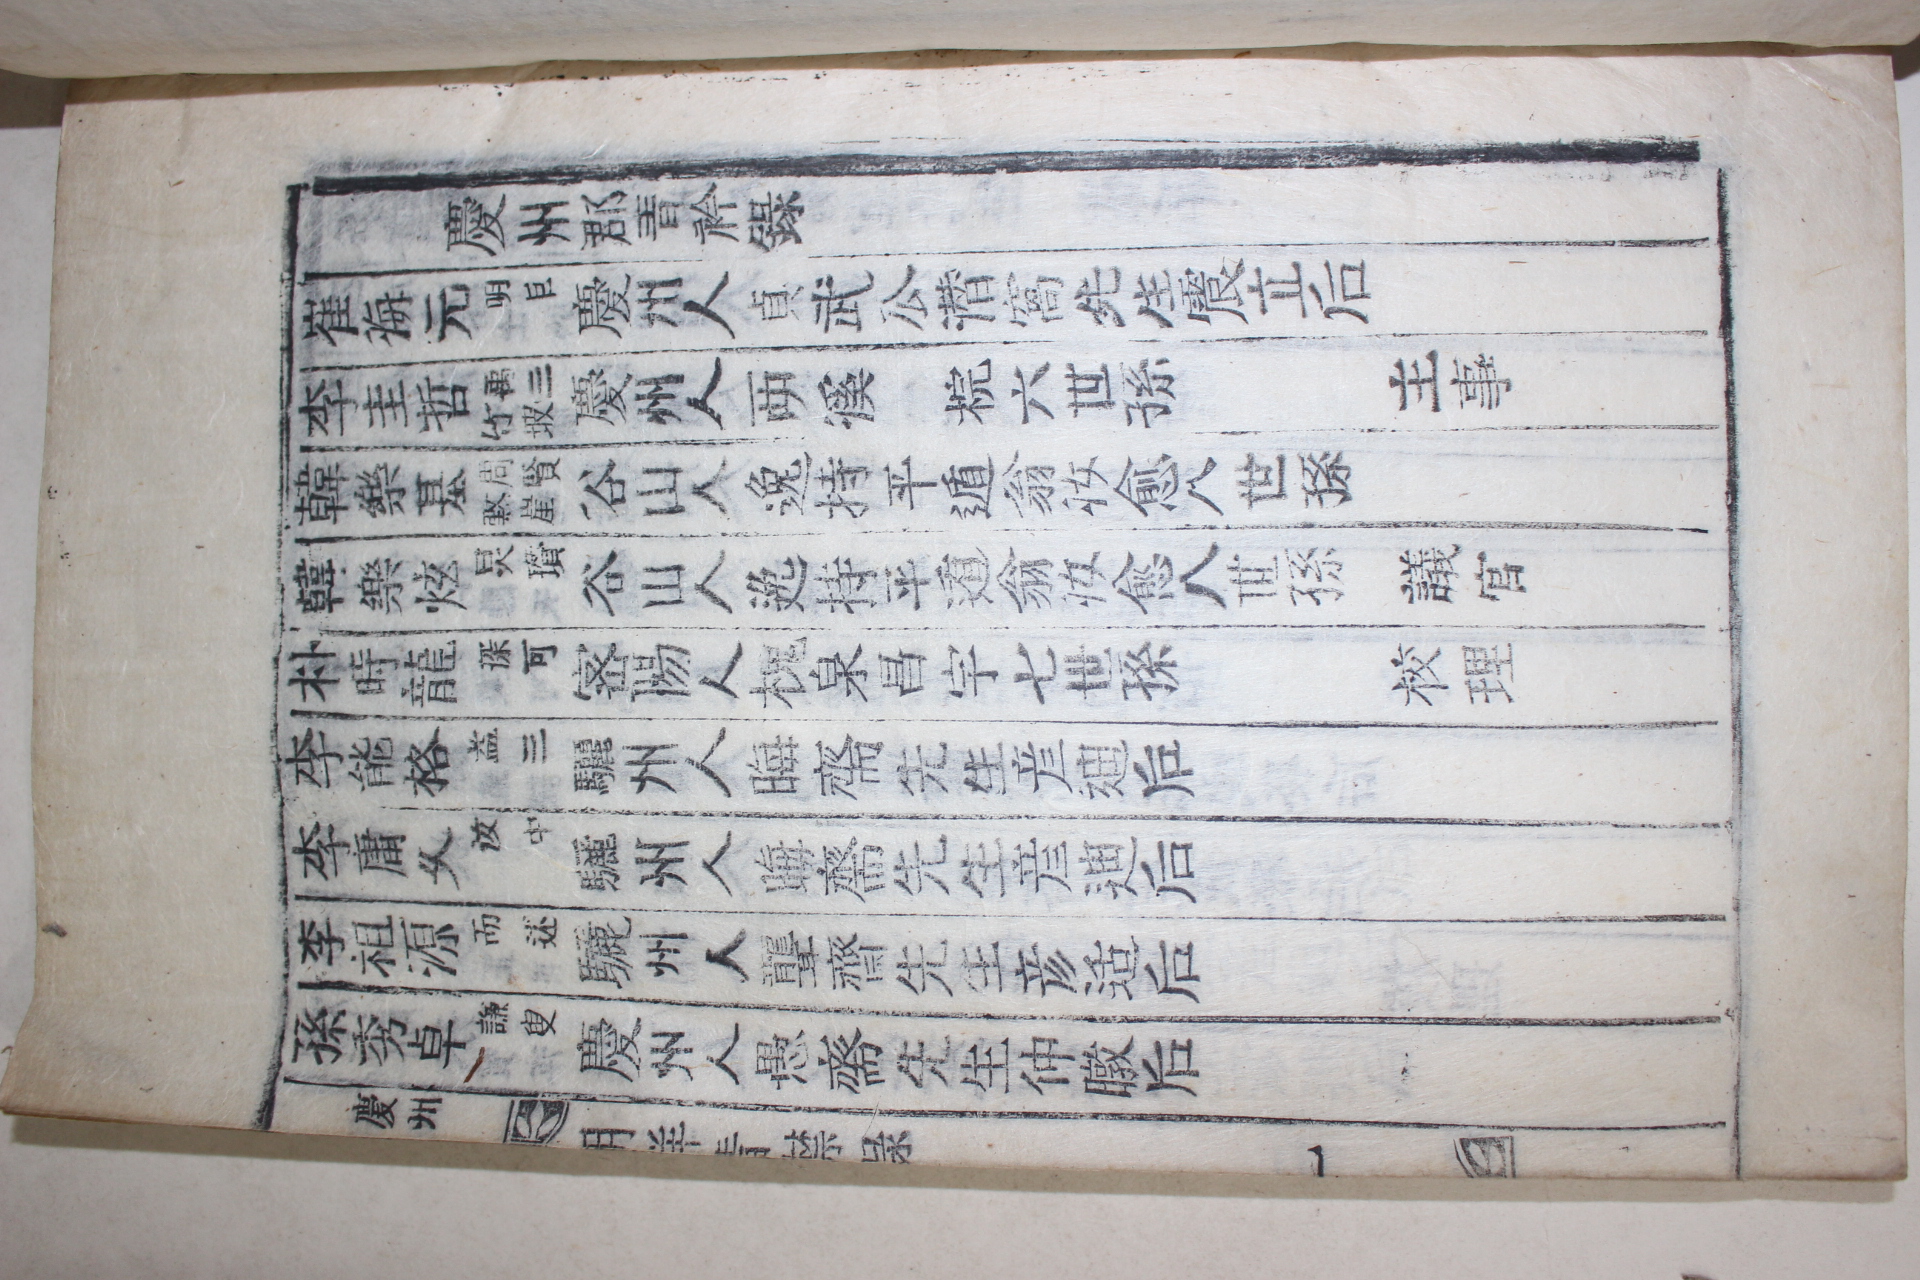 慶州郡青衿錄
崔海元 明臣 慶州人貞武公潛窩先生震立后
李圭哲 禹三 竹坡 慶州人两溪 梡六世孫 主事
韓樂基 周賢 憨崖 谷山人逸持平遁翁汝愈八世孫
韓樂炫 炅瓚 谷山人逸持平遁翁汝愈八世孫 議官
朴時龍 深可 密陽人槐泉昌宇七世孫 校理
李能格 益三 驪州人晦齋先生彦迪后
李庸久 汝中 驪州人晦齋先生彦迪后
李祖源 而述 驪州人聾齋先生彦适后
孫秀卓 謙叟 慶州人愚齋先生仲暾后
慶州